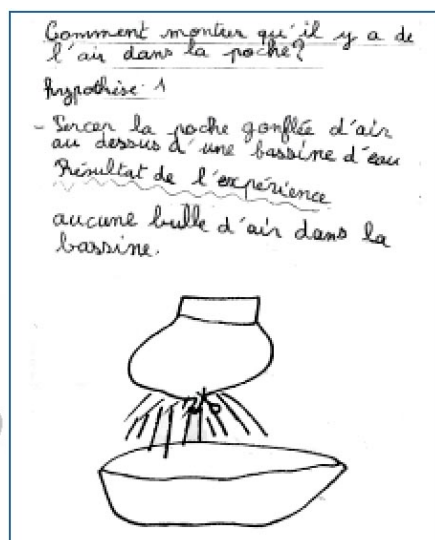 Comment montrer qu'il y a de
l'air dans la poche?
hypothèse 1
- Percer la poche gonflée d'air
au dessous d'une bassine d'eau
Résultat de l'expérience
aucune bulle d'air dans la
bassine.